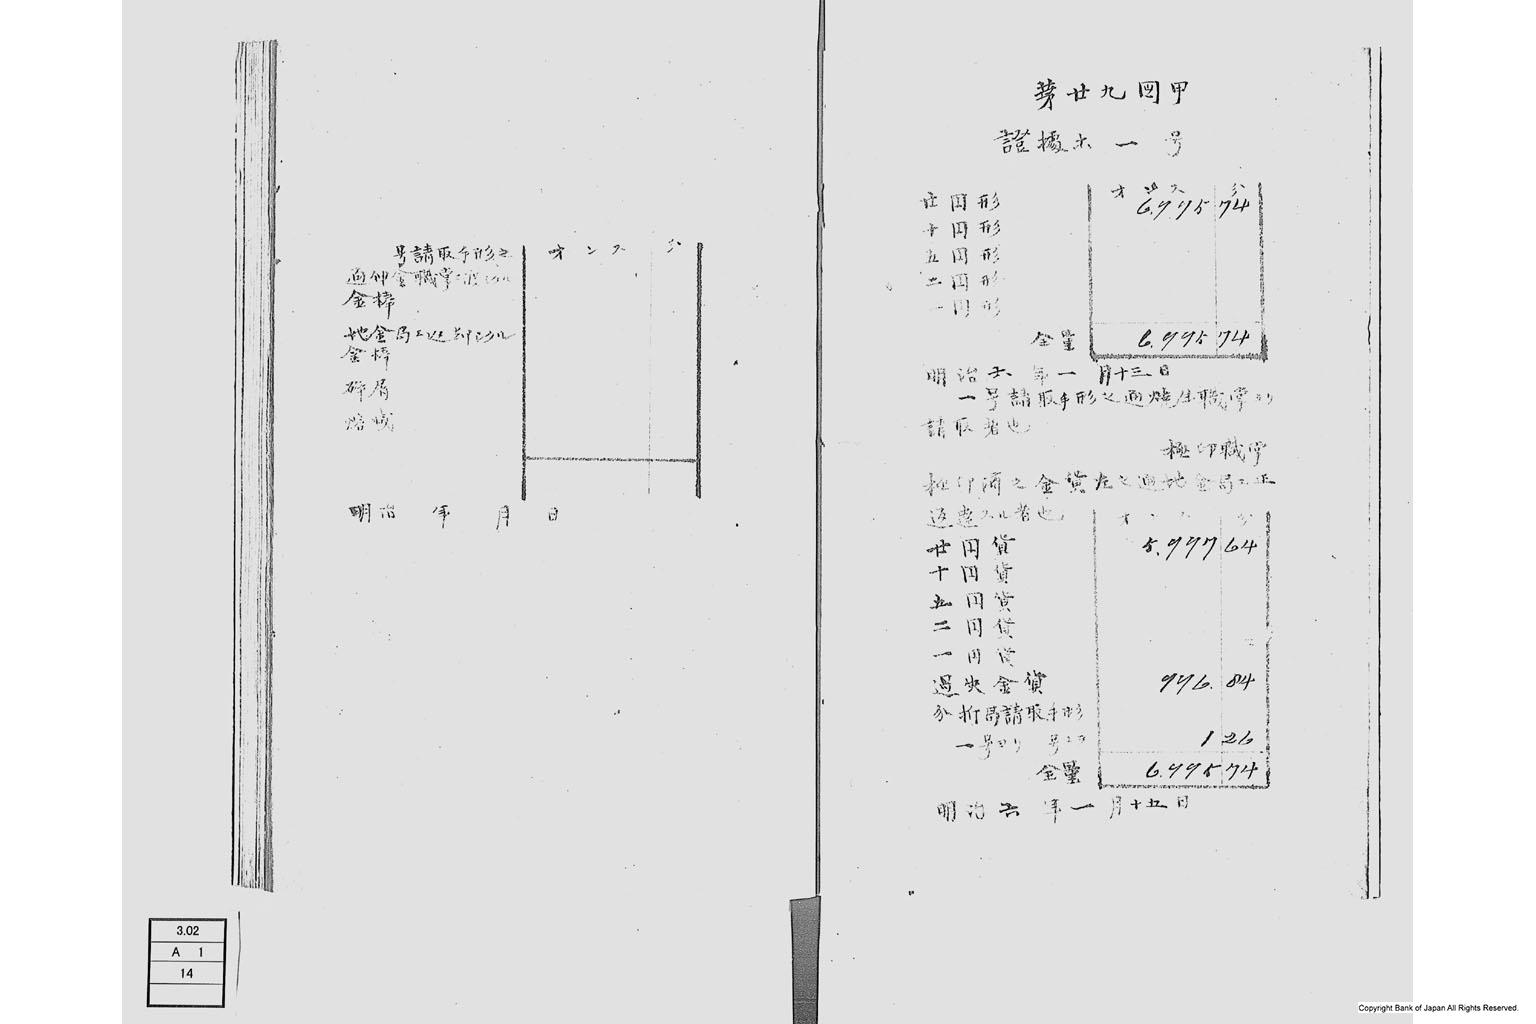 第廿九図甲
證據第一号
オンス 分
廿円形 6,995 74
十円形
五円形
二円形
一円形
全量 6,995 74
明治六年一月十三日
一号請取手形之通焼生職掌ヨリ
請取者也
極印職掌
極印済之金貨左之通地金局エ正
返達スル者也
オンス 分
廿円貨 5,997 64
十円貨
五円貨
二円貨
一円貨
過失金貨 996. 84
分析局請取手形
一号ヨリ 号マデ 1 26
全量 6,995 74
明治六年一月十五日
号請取手形之
オンス 分
通伸金職掌エ渡シタル
金棒
地金局エ返却シタル
金棒
砕屑
焔滅
明治 年 月 日
3.02
A 1
14
Copyright Bank of Japan All Rights Reserved.